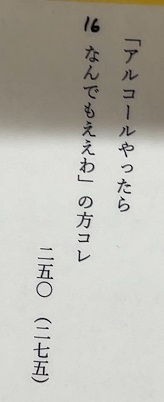 「アルコールやったら
16
なんでもええわ」の方コレ
二五〇 （二七五）